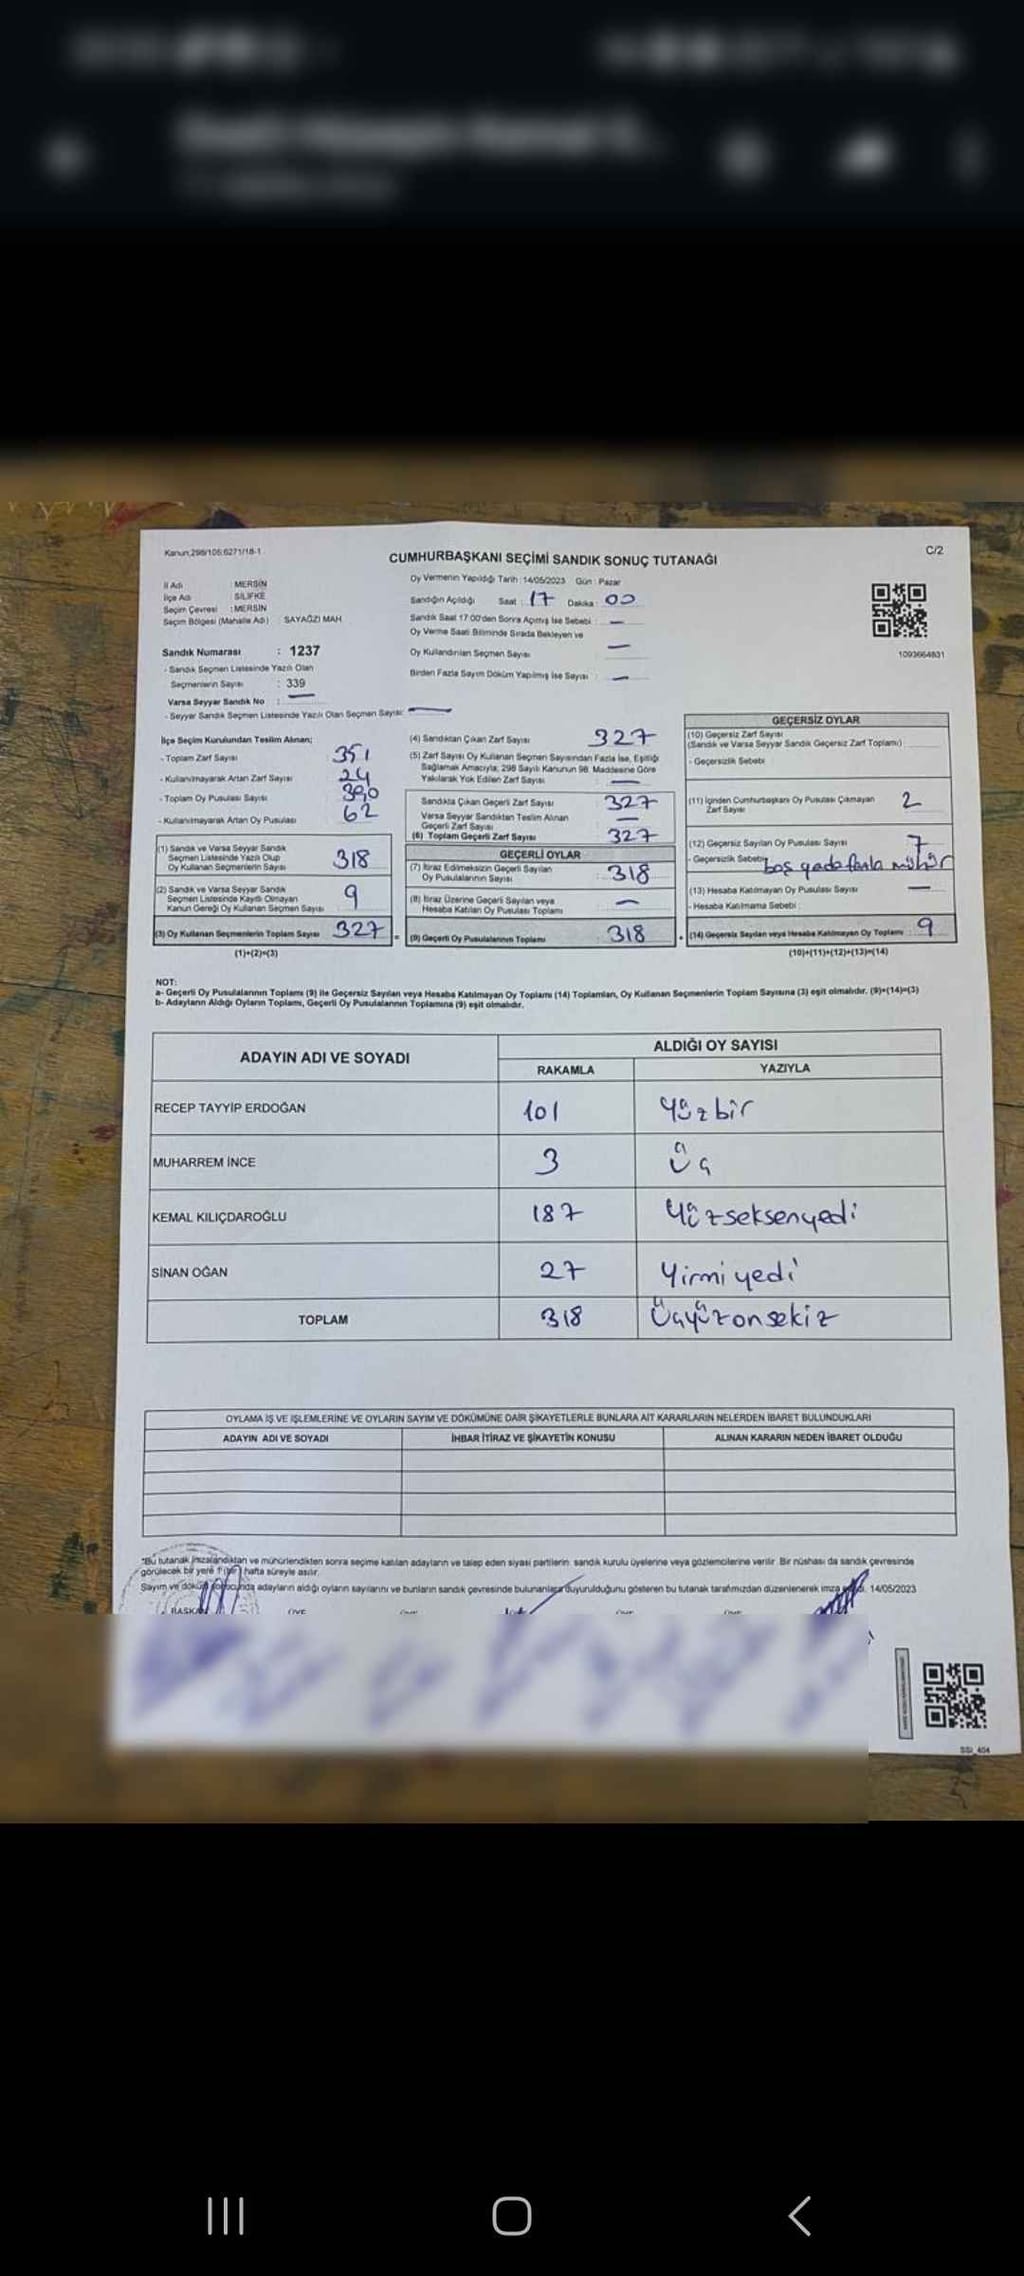 Kanun:298/105;6271/18-1
C/2
CUMHURBAŞKANI SEÇİMİ SANDIK SONUÇ TUTANAĞI
İl Adı : MERSİN
İlçe Adı : SİLİFKE
Seçim Çevresi : MERSİN
Seçim Bölgesi (Mahalle Adı) SAYAĞZI MAH.
Sandık Numarası : 1237
- Sandık Seçmen Listesinde Yazılı Olan
Seçmenlerin Sayısı : 339
Varsa Seyyar Sandık No : —
- Seyyar Sandık Seçmen Listesinde Yazılı Olan Seçmen Sayısı: —
Oy Vermenin Yapıldığı Tarih :14/05/2023 Gün : Pazar
Sandığın Açıldığı Saat : 17 Dakika : 00
Sandık Saat 17:00'den Sonra Açılmış İse Sebebi : —
Oy Verme Saati Bitiminde Sırada Bekleyen ve
Oy Kullandırılan Seçmen Sayısı —
Birden Fazla Sayım Döküm Yapılmış İse Sayısı : —
1093664831
İlçe Seçim Kurulundan Teslim Alınan;
- Toplam Zarf Sayısı 351
- Kullanılmayarak Artan Zarf Sayısı 24
- Toplam Oy Pusulası Sayısı 390
- Kullanılmayarak Artan Oy Pusulası 62
(1) Sandık ve Varsa Seyyar Sandık
Seçmen Listesinde Yazılı Olup
Oy Kullanan Seçmenlerin Sayısı 318
(2) Sandık ve Varsa Seyyar Sandık
Seçmen Listesinde Kayıtlı Olmayan
Kanun Gereği Oy Kullanan Seçmen Sayısı 9
(3) Oy Kullanan Seçmenlerin Toplam Sayısı 327
(1)+(2)=(3)
(4) Sandıktan Çıkan Zarf Sayısı 327
(5) Zarf Sayısı Oy Kullanan Seçmen Sayısından Fazla İse, Eşitliği
Sağlamak Amacıyla; 298 Sayılı Kanunun 98. Maddesine Göre
Yakılarak Yok Edilen Zarf Sayısı —
Sandıkta Çıkan Geçerli Zarf Sayısı : 327
Varsa Seyyar Sandıktan Teslim Alınan
Geçerli Zarf Sayısı —
(6) Toplam Geçerli Zarf Sayısı : 327
GEÇERLİ OYLAR
(7) İtiraz Edilmeksizin Geçerli Sayılan
Oy Pusulalarının Sayısı : 318
(8) İtiraz Üzerine Geçerli Sayılan veya
Hesaba Katılan Oy Pusulası Toplamı : —
(9) Geçerli Oy Pusulalarının Toplamı : 318
GEÇERSİZ OYLAR
(10) Geçersiz Zarf Sayısı
(Sandık ve Varsa Seyyar Sandık Geçersiz Zarf Toplamı)
- Geçersizlik Sebebi
(11) İçinden Cumhurbaşkanı Oy Pusulası Çıkmayan
Zarf Sayısı 2
(12) Geçersiz Sayılan Oy Pusulası Sayısı 7
- Geçersizlik Sebebi boş yada fazla mühür
(13) Hesaba Katılmayan Oy Pusulası Sayısı —
- Hesaba Katılmama Sebebi :
(14) Geçersiz Sayılan veya Hesaba Katılmayan Oy Toplamı : 9
(10)+(11)+(12)+(13)=(14)
NOT:
a- Geçerli Oy Pusulalarının Toplamı (9) ile Geçersiz Sayılan veya Hesaba Katılmayan Oy Toplamı (14) Toplamları, Oy Kullanan Seçmenlerin Toplam Sayısına (3) eşit olmalıdır. (9)+(14)=(3)
b- Adayların Aldığı Oyların Toplamı, Geçerli Oy Pusulalarının Toplamına (9) eşit olmalıdır.
ADAYIN ADI VE SOYADI
ALDIĞI OY SAYISI
RAKAMLA YAZIYLA
RECEP TAYYİP ERDOĞAN 101 Yüzbir
MUHARREM İNCE 3 Üç
KEMAL KILIÇDAROĞLU 187 Yüzseksenyedi
SİNAN OĞAN 27 Yirmiyedi
TOPLAM 318 Üçyüzonsekiz
OYLAMA İŞ VE İŞLEMLERİNE VE OYLARIN SAYIM VE DÖKÜMÜNE DAİR ŞİKAYETLERLE BUNLARA AİT KARARLARIN NELERDEN İBARET BULUNDUKLARI
ADAYIN ADI VE SOYADI İHBAR İTİRAZ VE ŞİKAYETİN KONUSU ALINAN KARARIN NEDEN İBARET OLDUĞU
"Bu tutanak imzalandıktan ve mühürlendikten sonra seçime katılan adayların ve talep eden siyasi partilerin sandık kurulu üyelerine veya gözlemcilerine verilir. Bir nüshası da sandık çevresinde
görülecek bir yere 1 (bir) hafta süreyle asılır.
Sayım ve döküm sonucunda adayların aldığı oyların sayılarını ve bunların sandık çevresinde bulunanlara duyurulduğunu gösteren bu tutanak tarafımızdan düzenlenerek imza 14/05/2023
BAŞKAN ÜYE
SSI_404